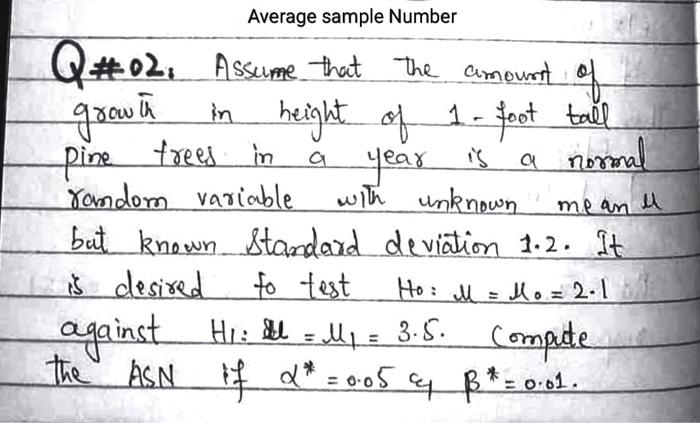 Average sample Number
Q#02: Assume that the amount of
growth in height of 1-foot tall
pine trees in a year is a normal
random variable with unknown mean μ
but known standard deviation 1.2. It
is desired to test H₀: μ = μ₀ = 2.1
against H₁: μ = μ₁ = 3.5. Compute
the ASN if α* = 0.05 & β* = 0.01.